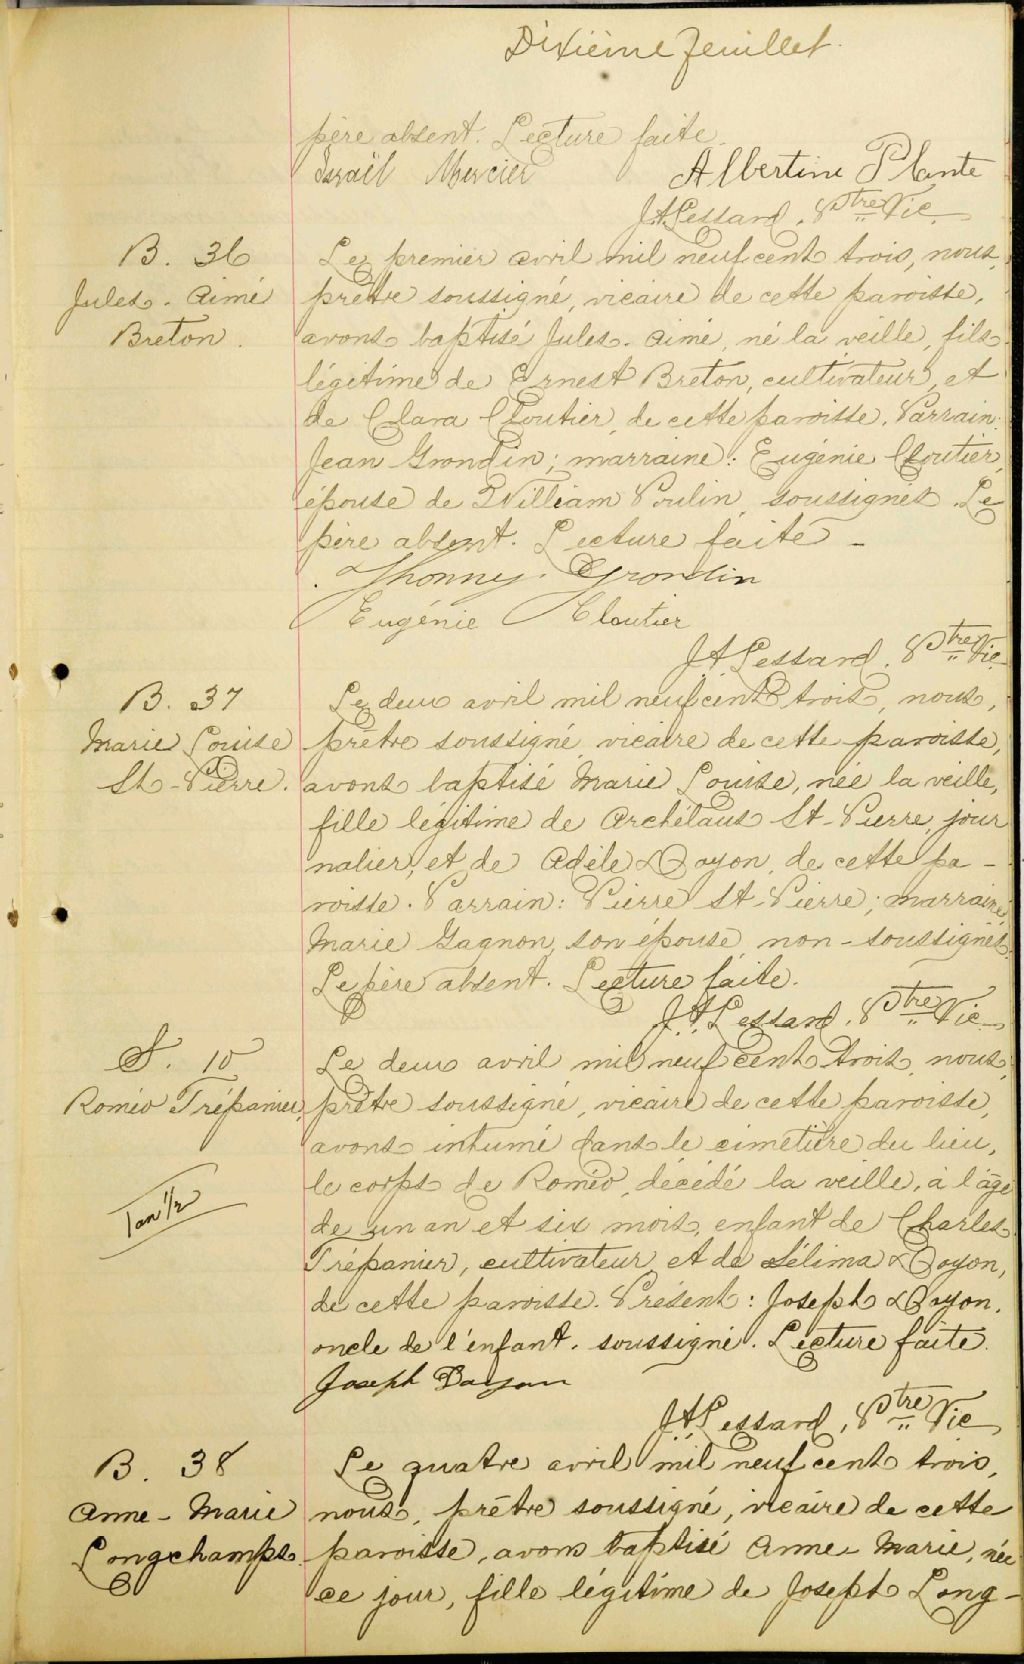 Dixième feuillet.
père absent. Lecture faite.
Israël Mercier Albertine Plante
J.A. Lessard, Ptre Vic.
B. 36
Jules-Aimé
Breton.
Le premier avril mil neuf cent trois, nous,
prêtre soussigné, vicaire de cette paroisse,
avons baptisé Jules-Aimé, né la veille, fils
légitime de Ernest Breton, cultivateur, et
de Clara Cloutier, de cette paroisse. Parrain:
Jean Grondin; marraine: Eugénie Cloutier,
épouse de William Poulin, soussignés. Le
père absent. Lecture faite -
Jhonny Grondin
Eugénie Cloutier
J A Lessard, Ptre Vic.
B. 37
Marie Louise
St-Pierre.
Le deux avril mil neuf cent trois, nous,
prêtre soussigné, vicaire de cette paroisse,
avons baptisé Marie Louise, née la veille,
fille légitime de Archélaus St-Pierre, jour
nalier, et de Adèle Doyon, de cette pa-
roisse. Parrain: Pierre St-Pierre; marraine,
Marie Gagnon, son épouse, non-soussignés.
Le père absent. Lecture faite.
J.A. Lessard, Ptre Vic.
S. 10
Roméo Trépanier,
1 an 1/2
Le deux avril mil neuf cent trois, nous,
prêtre soussigné, vicaire de cette paroisse,
avons inhumé dans le cimetière du lieu,
le corps de Roméo, décédé la veille, à l'âge
de un an et six mois, enfant de Charles
Trépanier, cultivateur, et de Sélima Doyon,
de cette paroisse. Présent: Joseph Doyon,
oncle de l'enfant, soussigné. Lecture faite.
Joseph Doyon
J.A. Lessard, Ptre Vic
B. 38
Anne-Marie
Longchamps.
Le quatre avril mil neuf cent trois,
nous, prêtre soussigné, vicaire de cette
paroisse, avons baptisé Anne-Marie, née
ce jour, fille légitime de Joseph Long-